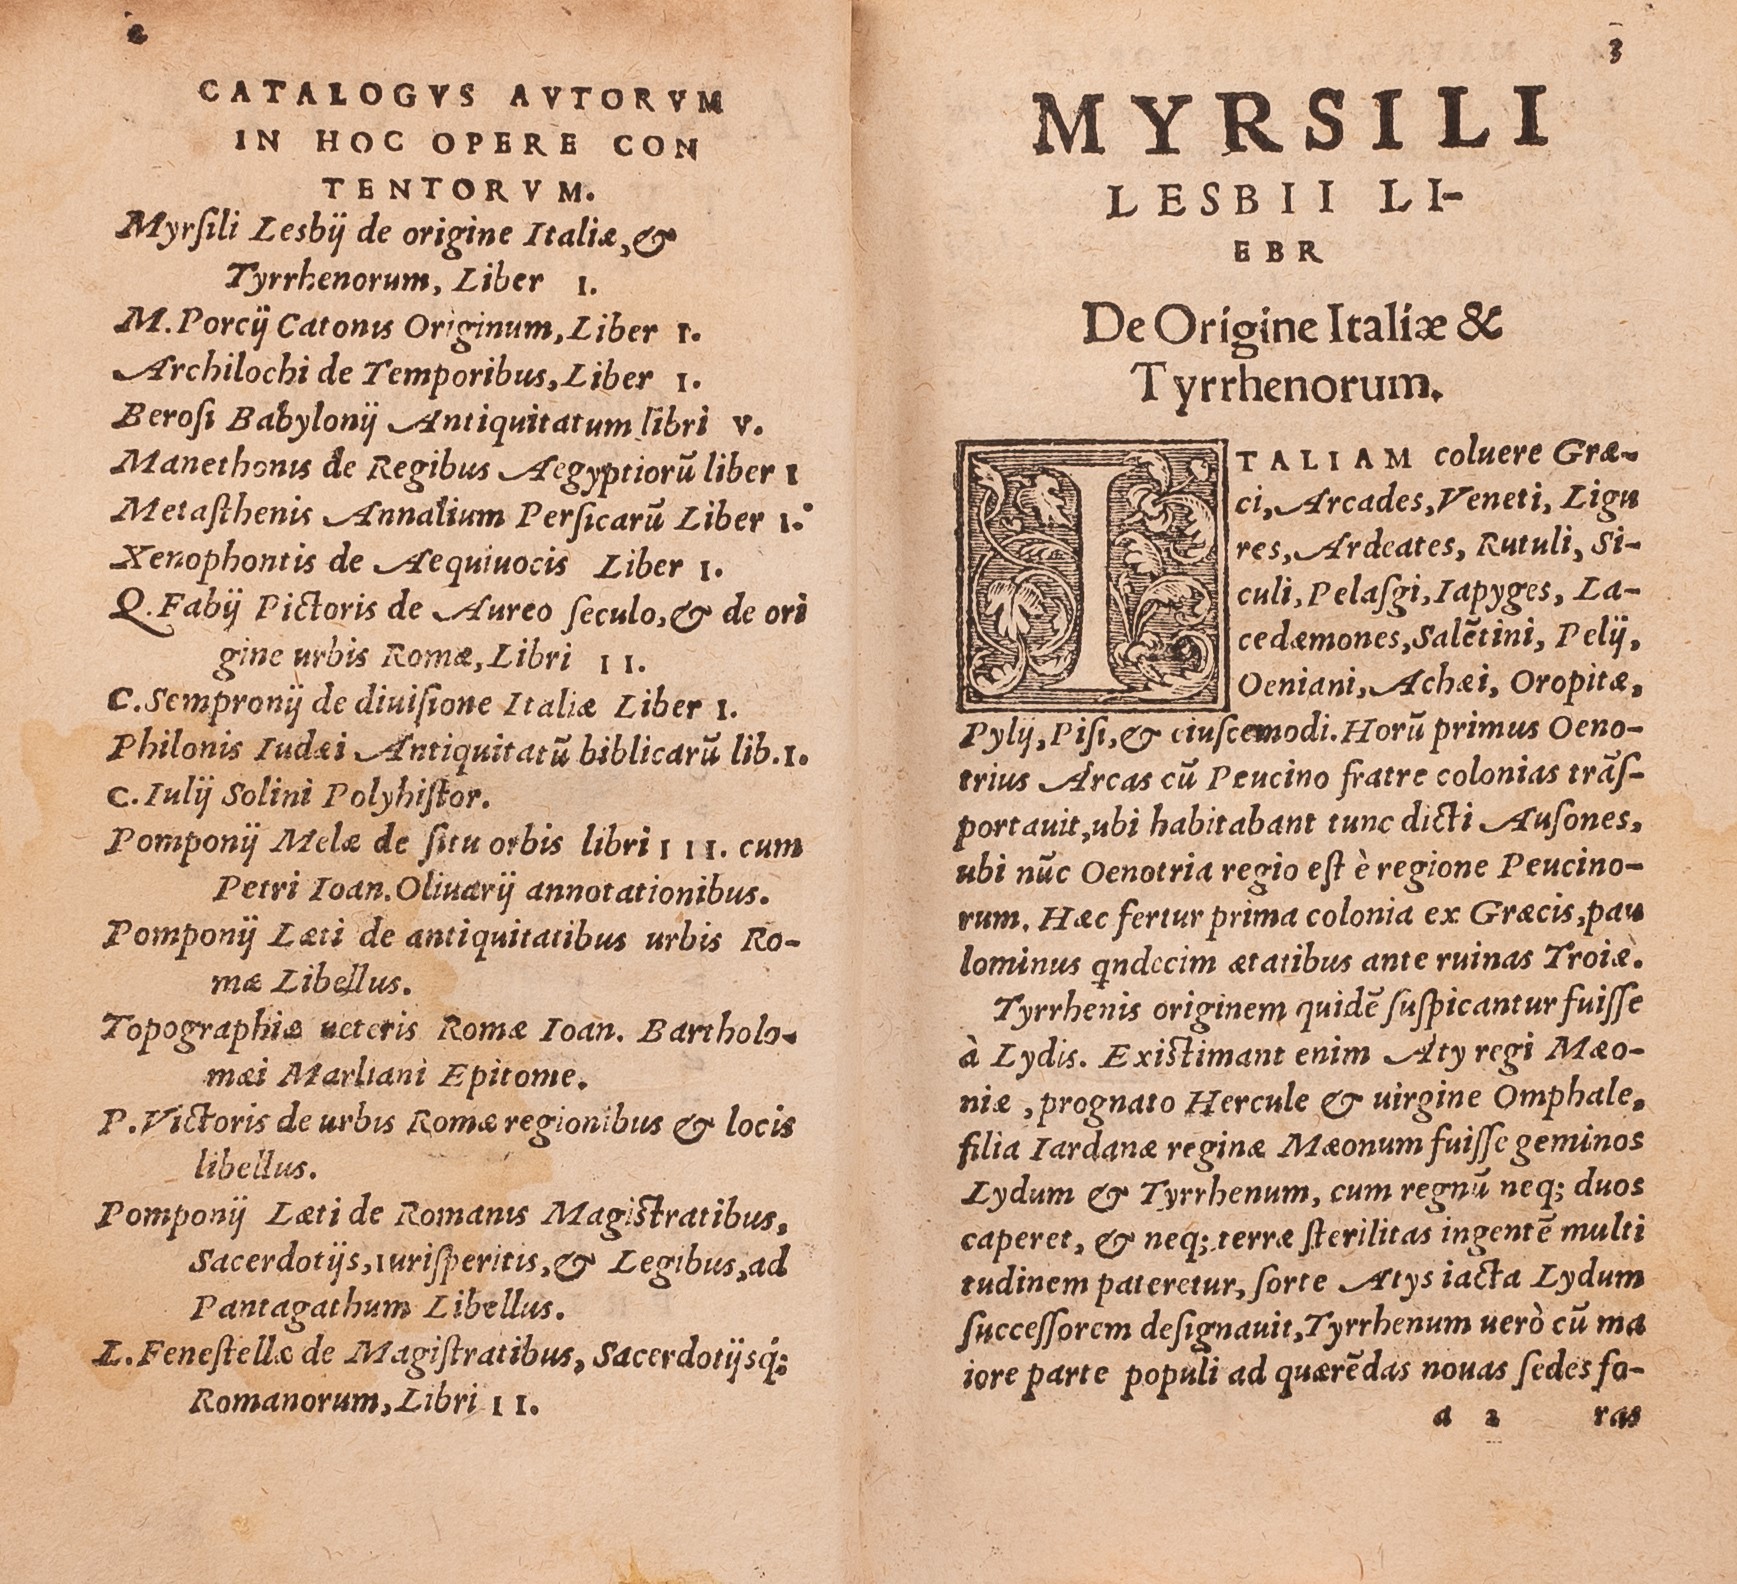 2
CATALOGVS AVTORVM
IN HOC OPERE CON
TENTORVM.
Myrſili Lesbij de origine Italiæ, &
Tyrrhenorum, Liber I.
M. Porcij Catonis Originum, Liber I.
Archilochi de Temporibus, Liber I.
Beroſi Babylonij Antiquitatum libri V.
Manethonis de Regibus Aegyptiorū liber I
Metaſthenis Annalium Perſicarū Liber I.
Xenophontis de Aequiuocis Liber I.
Q. Fabij Pictoris de Aureo ſeculo, & de ori
gine urbis Romæ, Libri II.
C. Sempronij de diuiſione Italiæ Liber I.
Philonis Iudæi Antiquitatū biblicarū lib. I.
C. Iulij Solini Polyhiſtor.
Pomponij Melæ de ſitu orbis libri III. cum
Petri Ioan. Oliuarij annotationibus.
Pomponij Læti de antiquitatibus urbis Ro-
mæ Libellus.
Topographiæ ueteris Romæ Ioan. Bartholo-
mæi Marliani Epitome.
P. Victoris de urbis Romæ regionibus & locis
libellus.
Pomponij Læti de Romanis Magiſtratibus,
Sacerdotijs, iuriſperitis, & Legibus, ad
Pantagathum Libellus.
L. Feneſtellæ de Magiſtratibus, Sacerdotijsq́;
Romanorum, Libri II.
3
MYRSILI
LESBII LI-
EBR
De Origine Italiæ &
Tyrrhenorum.
ITALIAM coluere Græ-
ci, Arcades, Veneti, Ligu
res, Ardeates, Rutuli, Si-
culi, Pelaſgi, Iapyges, La-
cedæmones, Salētini, Pelij,
Oeniani, Achæi, Oropitæ,
Pylij, Piſi, & eiuſcemodi. Horū primus Oeno-
trius Arcas cū Peucino fratre colonias trāſ-
portauit, ubi habitabant tunc dicti Auſones,
ubi nūc Oenotria regio eſt è regione Peucino-
rum. Hæc fertur prima colonia ex Græcis, pau
lominus qndecim ætatibus ante ruinas Troiæ.
Tyrrhenis originem quidē ſuſpicantur fuiſſe
à Lydis. Exiſtimant enim Aty regi Mæo-
niæ, prognato Hercule & uirgine Omphale,
filia Iardanæ reginæ Mæonum fuiſſe geminos
Lydum & Tyrrhenum, cum regnū neq; duos
caperet, & neq; terræ ſterilitas ingentē multi
tudinem pateretur, ſorte Atys iacta Lydum
ſucceſſorem deſignauit, Tyrrhenum uerò cū ma
iore parte populi ad quærēdas nouas ſedes fo-
a 2 ras